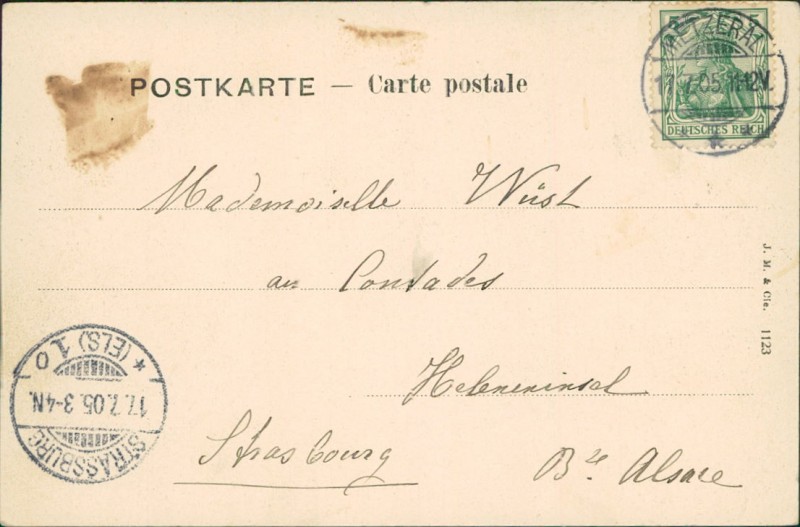 POSTKARTE — Carte postale
METZERAL
7.05. 11-12V.
DEUTSCHES REICH
Mademoiselle Wüst
au Contades
J. M. & Cie. 1123
Heleneninsel
Strasbourg Bse Alsace
STRASSBURG
17.7.05. 3-4N.
* (ELS) 1 o